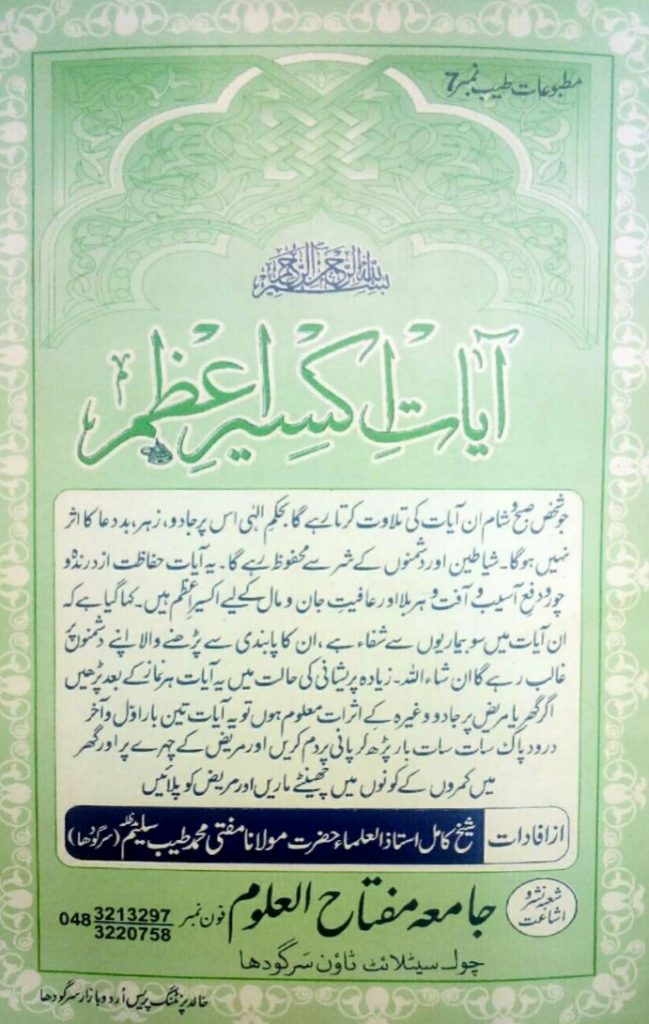 مطبوعات طیب نمبر 7
بسم اللہ الرحمن الرحیم
آیاتِ اکسیرِ اعظم
جو شخص صبح و شام ان آیات کی تلاوت کرتا رہے گا بحکم الٰہی اس پر جادو، زہر، بددعا کا اثر
نہیں ہوگا۔ شیاطین اور دشمنوں کے شر سے محفوظ رہے گا۔ یہ آیات حفاظت از درندہ و
چور و دفع آسیب و آفت و ہر بلا اور عافیتِ جان و مال کے لیے اکسیرِ اعظم ہیں۔ کہا گیا ہے کہ
ان آیات میں سو بیماریوں سے شفاء ہے، ان کا پابندی سے پڑھنے والا اپنے دشمنوں پر
غالب رہے گا ان شاء اللہ۔ زیادہ پریشانی کی حالت میں یہ آیات ہر نماز کے بعد پڑھیں
اگر گھر یا مریض پر جادو وغیرہ کے اثرات معلوم ہوں تو یہ آیات تین بار اوّل و آخر
درود پاک سات سات بار پڑھ کر پانی پر دم کریں اور مریض کے چہرے پر اور گھر
میں کمروں کے کونوں میں چھینٹے ماریں اور مریض کو پلائیں
از افادات شیخ کامل استاذ العلماء حضرت مولانا مفتی محمد طیب سلیم مدظلہ (سرگودھا)
شعبہ نشر و اشاعت
جامعہ مفتاح العلوم فون نمبر 048 3213297
3220758
چوک سیٹلائٹ ٹاؤن سرگودھا
خالد پرنٹنگ پریس اُردو بازار سرگودھا